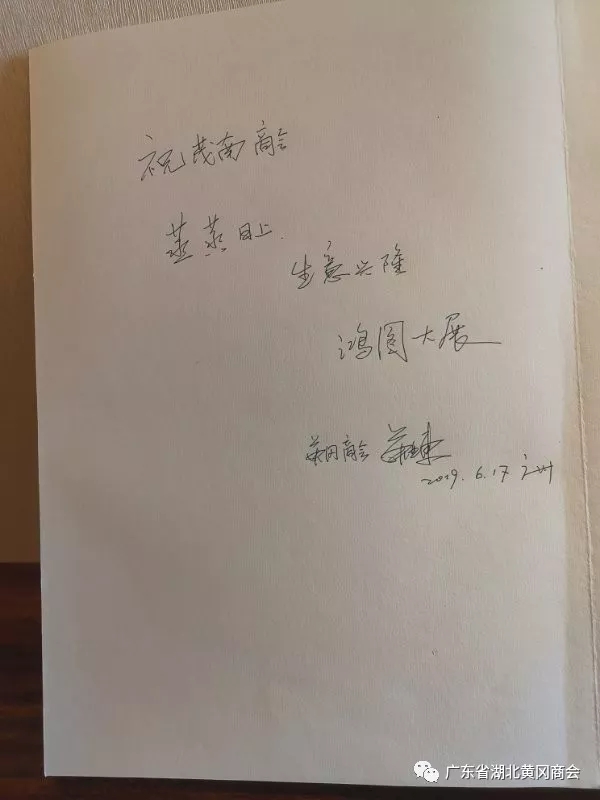 祝茂南商会
蒸蒸日上.
生意兴隆
鸿图大展
商会
2019.6.17 广州
广东省湖北黄冈商会